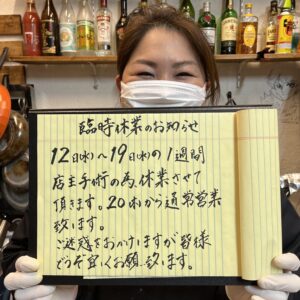 臨時休業のお知らせ
12日(水)〜19日(水)の1週間
店主手術の為、休業させて
頂きます。20(木)から通常営業
致します。
ご迷惑をおかけしますが皆様
どうぞ宜しくお願い致します。